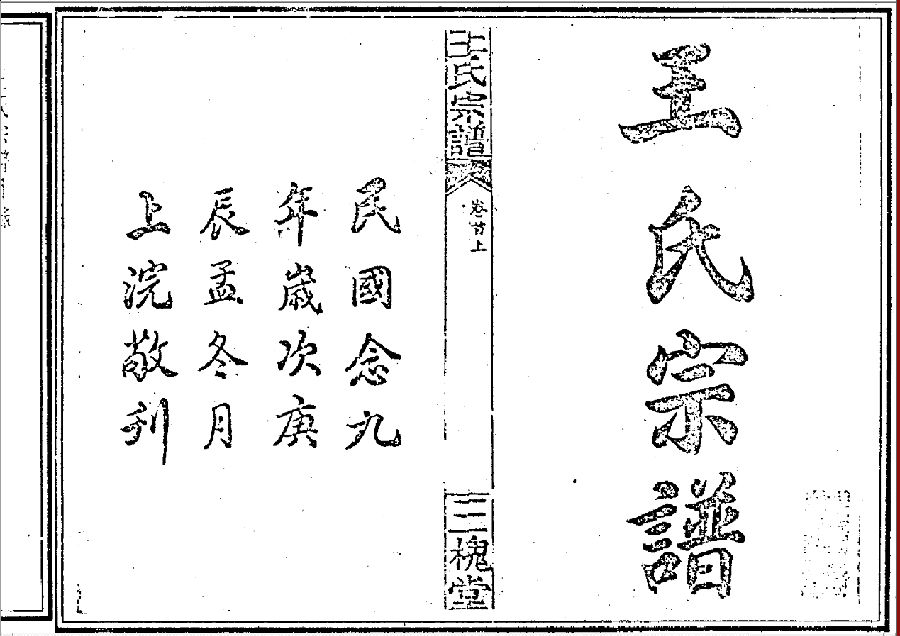 王氏宗譜
王氏宗譜
卷首上
三槐堂
民國念九
年歲次庚
辰孟冬月
上浣敬刋